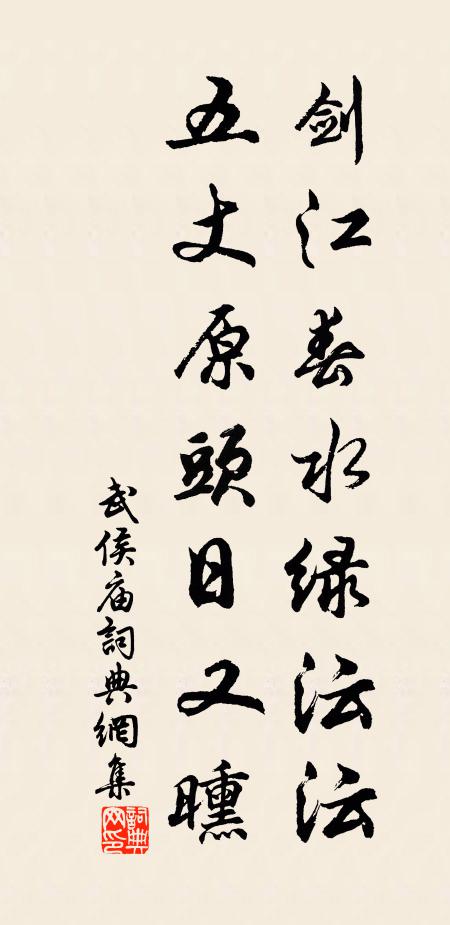 剑江春水緑沄沄
五丈原頭日又曛
武侯庙詞典網集
詞典网印